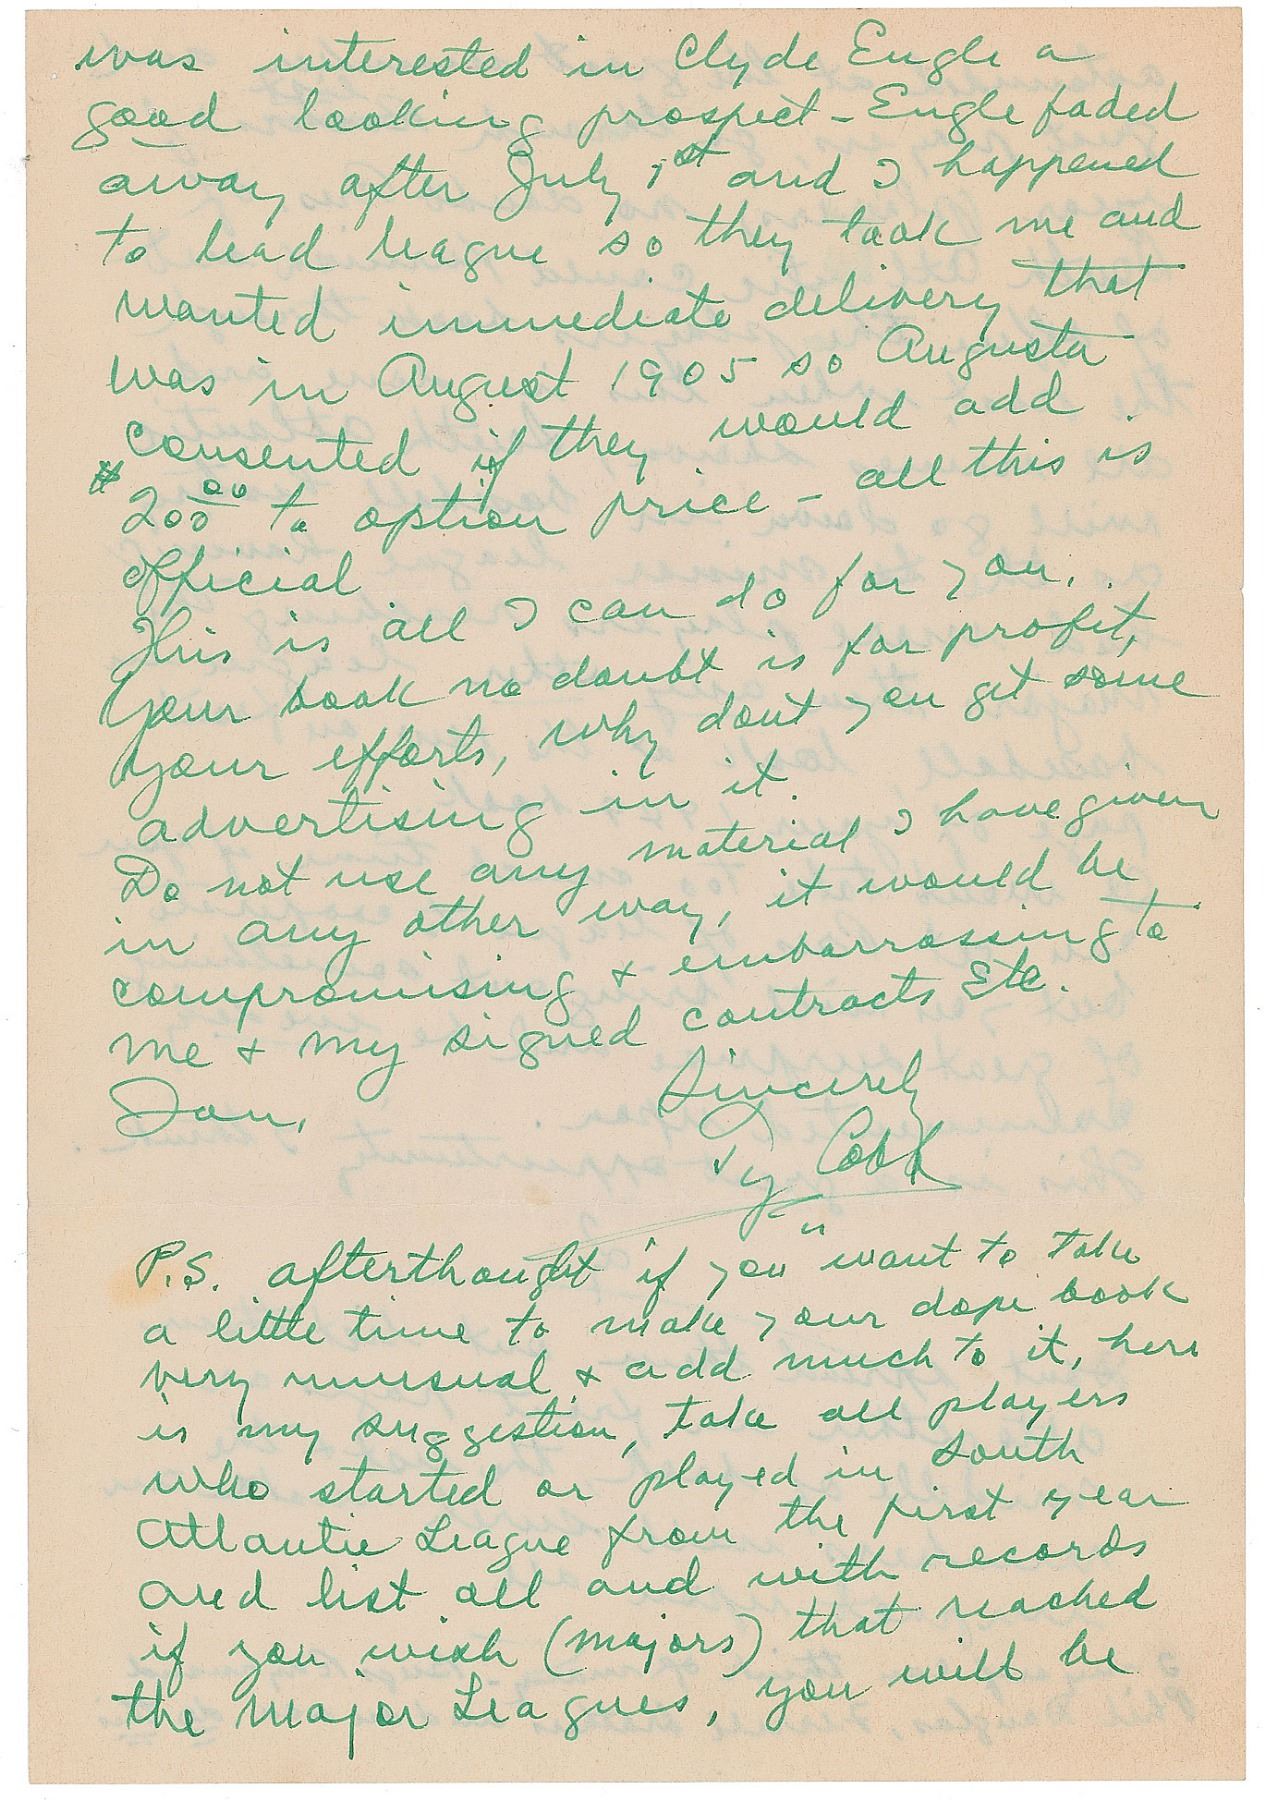 was interested in Clyde Engle a
good looking prospect - Engle faded
away after July 1st and I happened
to lead league so they took me and
wanted immediate delivery that
was in August 1905 so Augusta
consented if they would add
$200.00 to option price - all this is
official
This is all I can do for you.
Your book no doubt is for profit,
your efforts, why dont you get some
advertising in it.
Do not use any material I have given
in any other way, it would be
compromising & embarrassing to
me & my signed contracts Etc.
Sincerely
Ty Cobb
P.S. afterthought if you "want to take
a little time to make your dope book
very unusual & add much to it, here
is my suggestion, take all players
who started or played in South
Atlantic League from the first year
and list all and with records
if you wish (majors) that reached
the Major Leagues, you will be